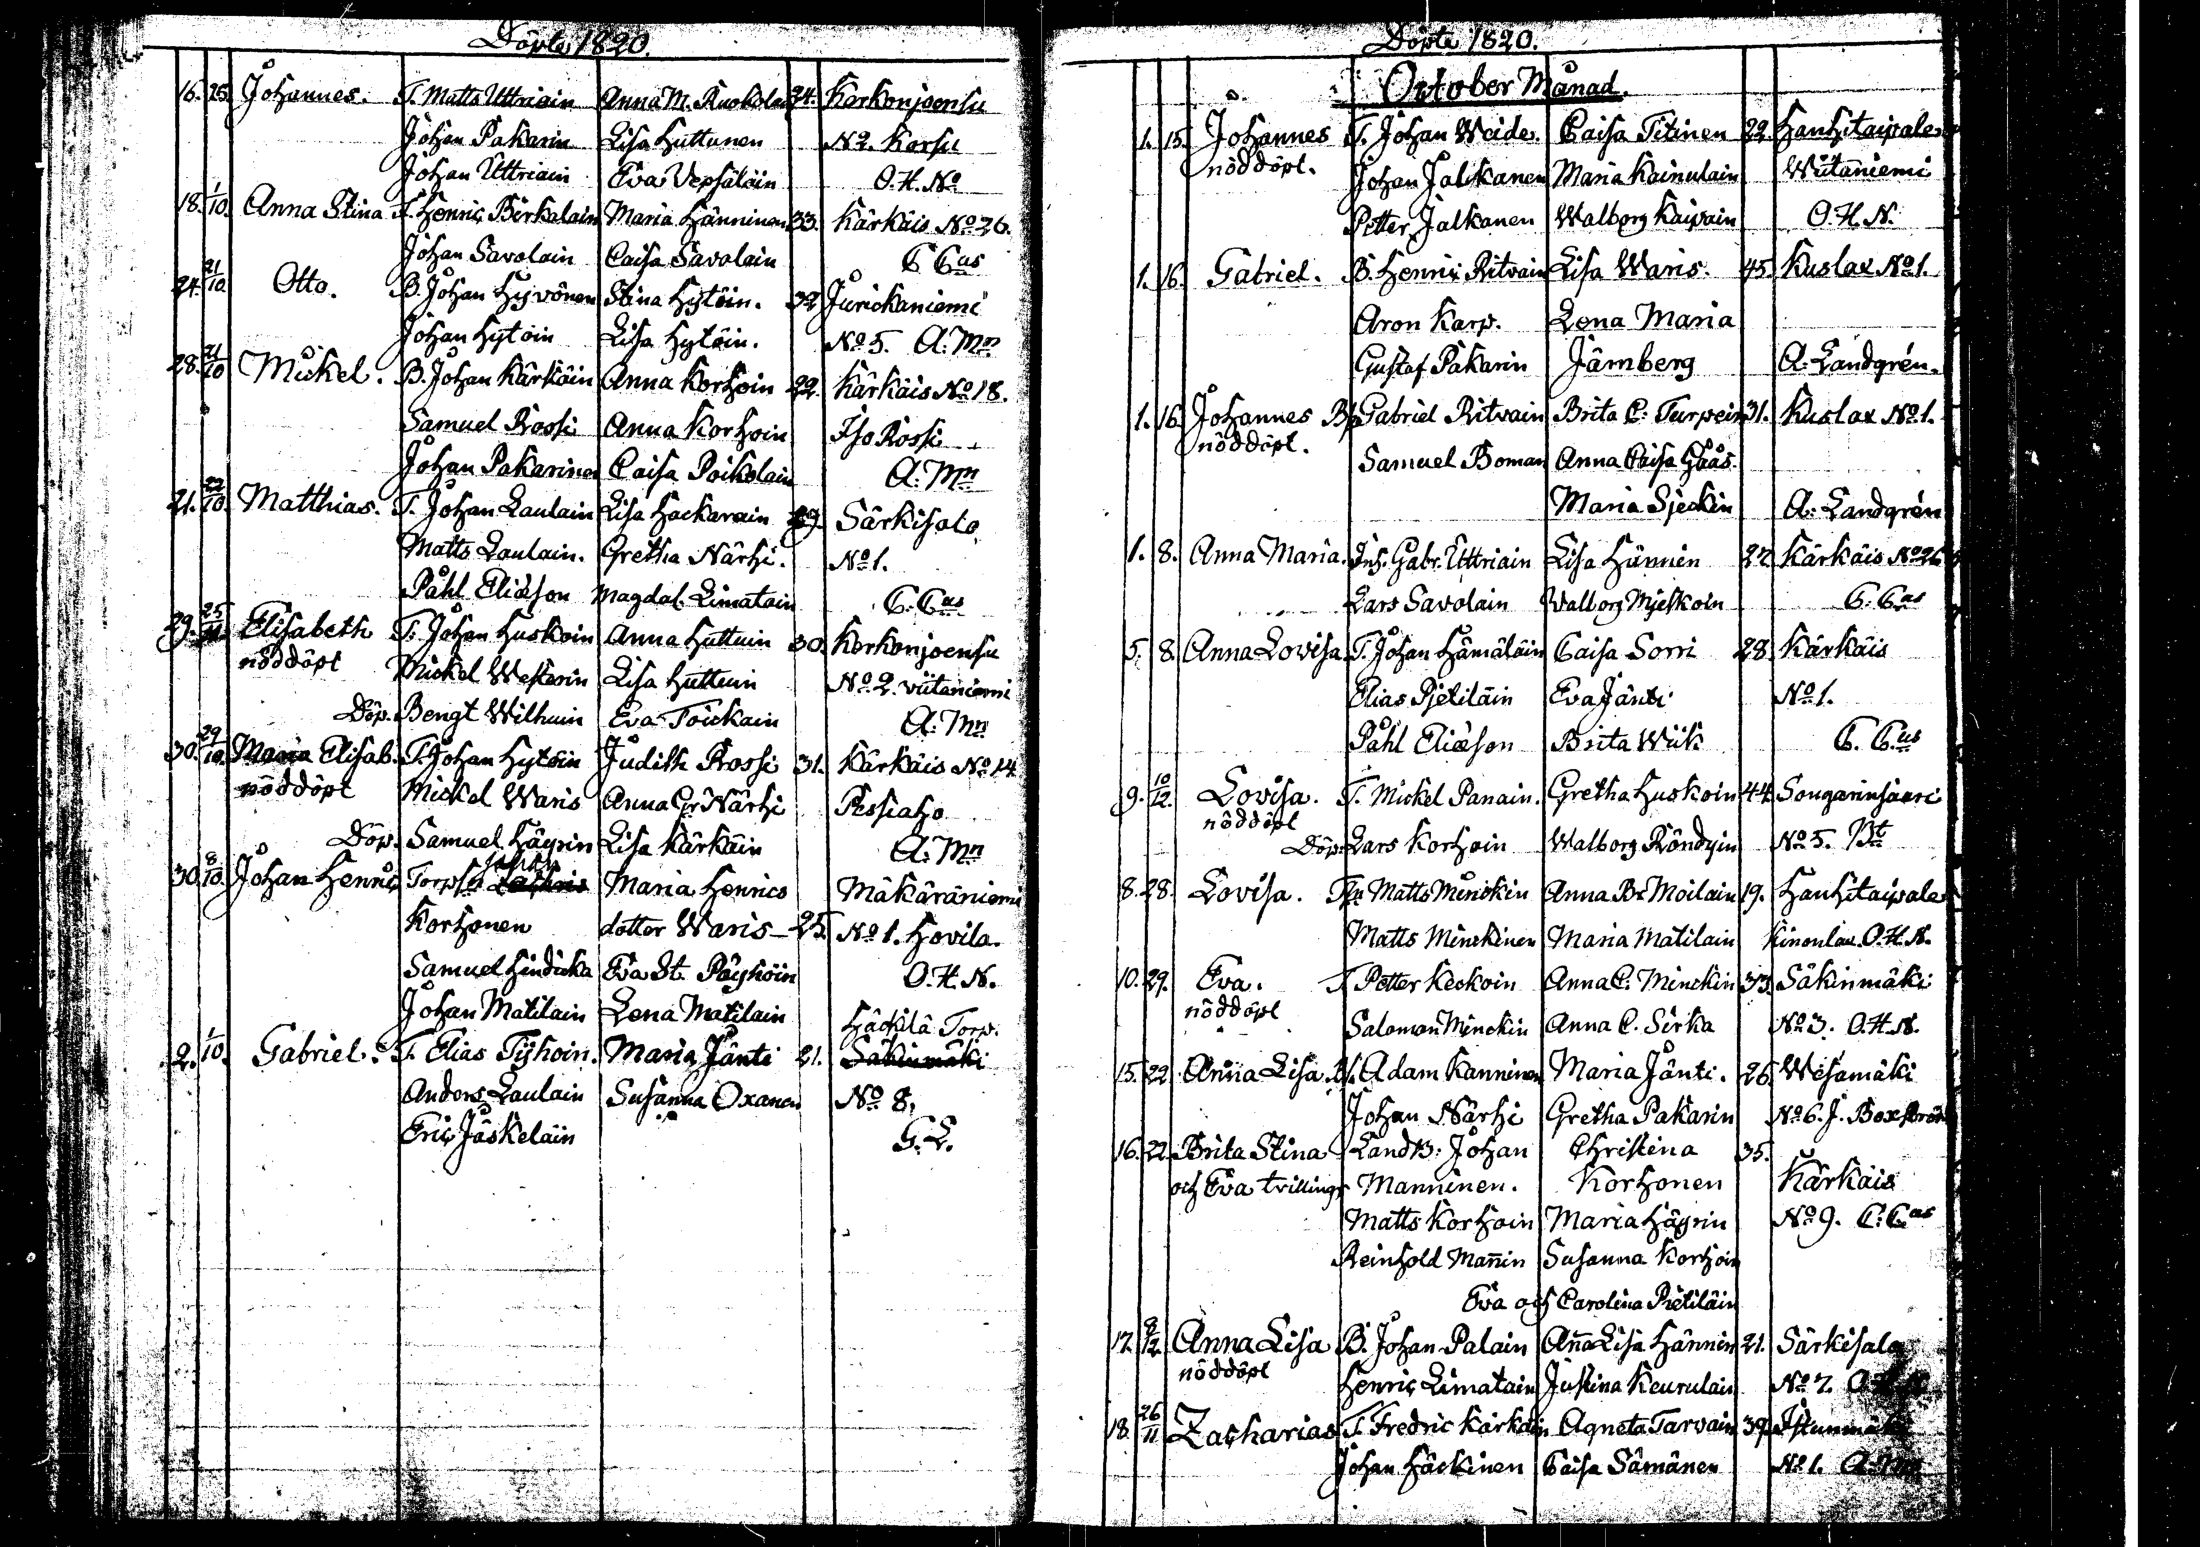 Döpte 1820.
16. 25. Johannes. T. Matts Uttriain Anna M. Ruokolai 24. Kerkonjoensu
Johan Pakarin Lisa Huttunen No 2. Korsu
Johan Uttriain Eva Vepsäläin O.H.N.
18. 1/10. Anna Stina T. Henric Birkalain Maria Hänninen 33. Kärkäis No 26.
Johan Savolain Caisa Savolain C. C:us
24. 21/10 Otto. B. Johan Hyvönen Stina Hytöin. 32 Jurickaniemi
Johan Hytöin Lisa Hytöin. No 5. A: Mn
28. 21/10 Mickel. B. Johan Kärkäin Anna Korhoin 22. Kärkäis No 18.
Samuel Rossi Anna Korhoin Iso Rossi
Johan Pakarinen Caisa Poikolain A: Mn
21. 22/10. Matthias. T. Johan Laulain Lisa Hackarain 29. Särkisalo
Matts Laulain. Gretha Närhi. No 1.
Påhl Eliæson Magdal. Limatain C. C:us
29. 25/11. Elisabeth T. Johan Huskoin Anna Huttuin 30. Kerkonjoensu
nöddöpt Mickel Westerin Lisa Huttuin No 2. viitaniemi
Döp. Bengt Wilhuin Eva Toickain A: Mn
30. 29/10. Maria Elisab. T. Johan Hytöin Judith Rossi 31. Kärkäis No 14
nöddöpt Mickel Waris Anna Gr. Närhi Pessiaho
Döp. Samuel Häyrin Lisa Kärkäin A: Mn
Johan
30. 8/10. Johan Henric Torps. Maria Henrics Mäkäräniemi
Korhonen dotter Waris 25. No 1. Hovila.
Samuel Hindicka Eva St. Päyhöin O.H.N.
Johan Matilain Lena Matilain
Häckilä Torp.
2. 1/10. Gabriel. T. Elias Tijhoin. Maria Jänti 21. Säkinmäki
Anders Laulain Susanna Oxanen No 8.
Eric Jäskeläin G.L.
Döpte 1820.
October Månad.
1. 15. Johannes T. Johan Weide. Caisa Titinen 22. Hanhitaipale
nöddöpt. Johan Jalkanen Maria Kainulain Wiitaniemi
Petter Jalkanen Walborg Kaipain O.H.N.
1. 16. Gabriel. B. Henric Ritvain Lisa Waris. 45. Kuslax No 1.
Aron Karp. Lena Maria
Gustaf Pakarin Järnberg A: Landgrén.
1. 16. Johannes Bs. Gabriel Ritvain Brita C: Turpein 31. Kuslax No 1.
nöddöpt. Samuel Boman Anna Caisa Gåås.
Maria Sjeckin A: Landgrén
1. 8. Anna Maria. Inh. Gabr. Uttriain Lisa Hännin 27 Kärkäis No 26
Lars Savolain Walborg Mjetkoin C. C:us
5. 8. Anna Lovisa T. Johan Hämäläin Caisa Sorri 28. Kärkäis
Elias Pjetiläin Eva Jänti No 1.
Påhl Eliæson Brita Wiik C. C:us
9. 10/12. Lovisa. T. Mickel Panain. Gretha Huskoin 44. Songarinsaari
nöddöpt
Döp: Lars Korhoin Walborg Röndyin No 5. Bt
8. 28. Lovisa. Tp. Matts Minckin Anna Br. Moilain 19. Hanhitaipale
Matts Minckinen Maria Matilain Kinonlax. O.H.N.
10. 29. Eva. T Petter Keckoin Anna C. Minckin 33. Säkinmäki
nöddöpt Salomon Minckin Anna C. Sirka No 3. O.H.N.
15. 22 Anna Lisa. Adam Kanninen Maria Jänti. 26. Wesamäki
Johan Närhi Gretha Pakarin No 6. J. Boxström
16. 22. Brita Stina Landb: Johan Christina 35.
och Eva tvillingr Manninen. Korhonen Kärkäis
Matts Korhoin Maria Häyrin No 9. C. C:us
Reinhold Man̄in Susanna Korhoin
Eva och Carolina Pietiläin
17. 8/12. Anna Lisa B. Johan Palain An̄a Lisa Hännin 21. Särkisalo
nöddöpt Henric Limatain Justina Keurulain No 7. O.H.N.
18. 26/11 Zacharias T. Fredric Kärkäin Agneta Tarvain 39. Istunmäki
Johan Häckinen Caisa Sämänen No 1. A: Mn